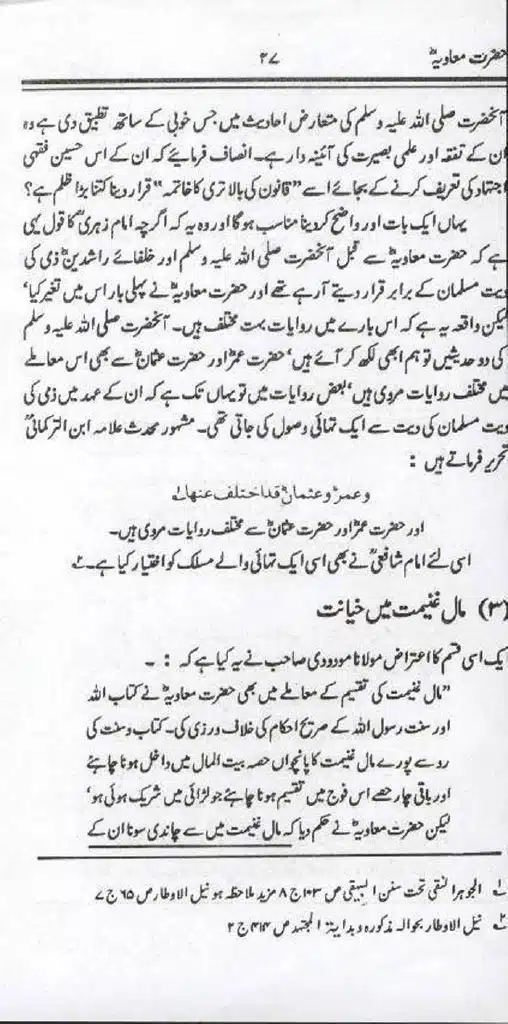 حضرت معاویہؓ
۴۷
آنحضرت صلی اللہ علیہ وسلم کی متعارض احادیث میں جس خوبی کے ساتھ تطبیق دی ہے وہ
ان کے تفقہ اور علمی بصیرت کی آئینہ دار ہے۔ انصاف فرمائیے کہ ان کے اس حسین فقہی
اجتہاد کی تعریف کرنے کے بجائے اسے "قانون کی بالاتری کا خاتمہ" قرار دینا کتنا بڑا ظلم ہے؟
یہاں ایک بات اور واضح کر دینا مناسب ہوگا اور وہ یہ کہ اگرچہ امام زہریؒ کا قول یہی
ہے کہ حضرت معاویہؓ سے قبل آنحضرت صلی اللہ علیہ وسلم اور خلفائے راشدینؓ ذمی کی
دیت مسلمان کے برابر قرار دیتے آرہے تھے اور حضرت معاویہؓ نے پہلی بار اس میں تغیر کیا،
لیکن واقعہ یہ ہے کہ اس بارے میں روایات بہت مختلف ہیں۔ آنحضرت صلی اللہ علیہ وسلم
کی دو حدیثیں تو ہم ابھی لکھ کر آئے ہیں، حضرت عمرؓ اور حضرت عثمانؓ سے بھی اس معاملے
میں مختلف روایات مروی ہیں، بعض روایات میں تو یہاں تک ہے کہ ان کے عہد میں ذمی کی
دیت مسلمان کی دیت سے ایک تہائی وصول کی جاتی تھی۔ مشہور محدث علامہ ابن الترکمانیؒ
تحریر فرماتے ہیں :
وعمرؓ وعثمانؓ قد اختلف عنہما۱؎
اور حضرت عمرؓ اور حضرت عثمانؓ سے مختلف روایات مروی ہیں۔
اسی لئے امام شافعیؒ نے بھی اسی ایک تہائی والے مسلک کو اختیار کیا ہے۔۲؎
(۳) مال غنیمت میں خیانت
ایک اسی قسم کا اعتراض مولانا مودودی صاحب نے یہ کیا ہے کہ : ۔
"مال غنیمت کی تقسیم کے معاملے میں بھی حضرت معاویہؓ نے کتاب اللہ
اور سنت رسول اللہ کے صریح احکام کی خلاف ورزی کی۔ کتاب و سنت کی
رو سے پورے مال غنیمت کا پانچواں حصہ بیت المال میں داخل ہونا چاہئے
اور باقی چار حصے اس فوج میں تقسیم ہونا چاہئے جو لڑائی میں شریک ہوئی ہو،
لیکن حضرت معاویہؓ نے حکم دیا کہ مال غنیمت میں سے چاندی سونا ان کے
۱؎ الجوہر النقی تحت سنن البیہقی ص ۱۰۳ ج ۸ مزید ملاحظہ ہو نیل الاوطار ص ۶۵ ج ۷
۲؎ نیل الاوطار بحوالہ مذکورہ و بدایۃ المجتہد ص ۴۱۴ ج ۲